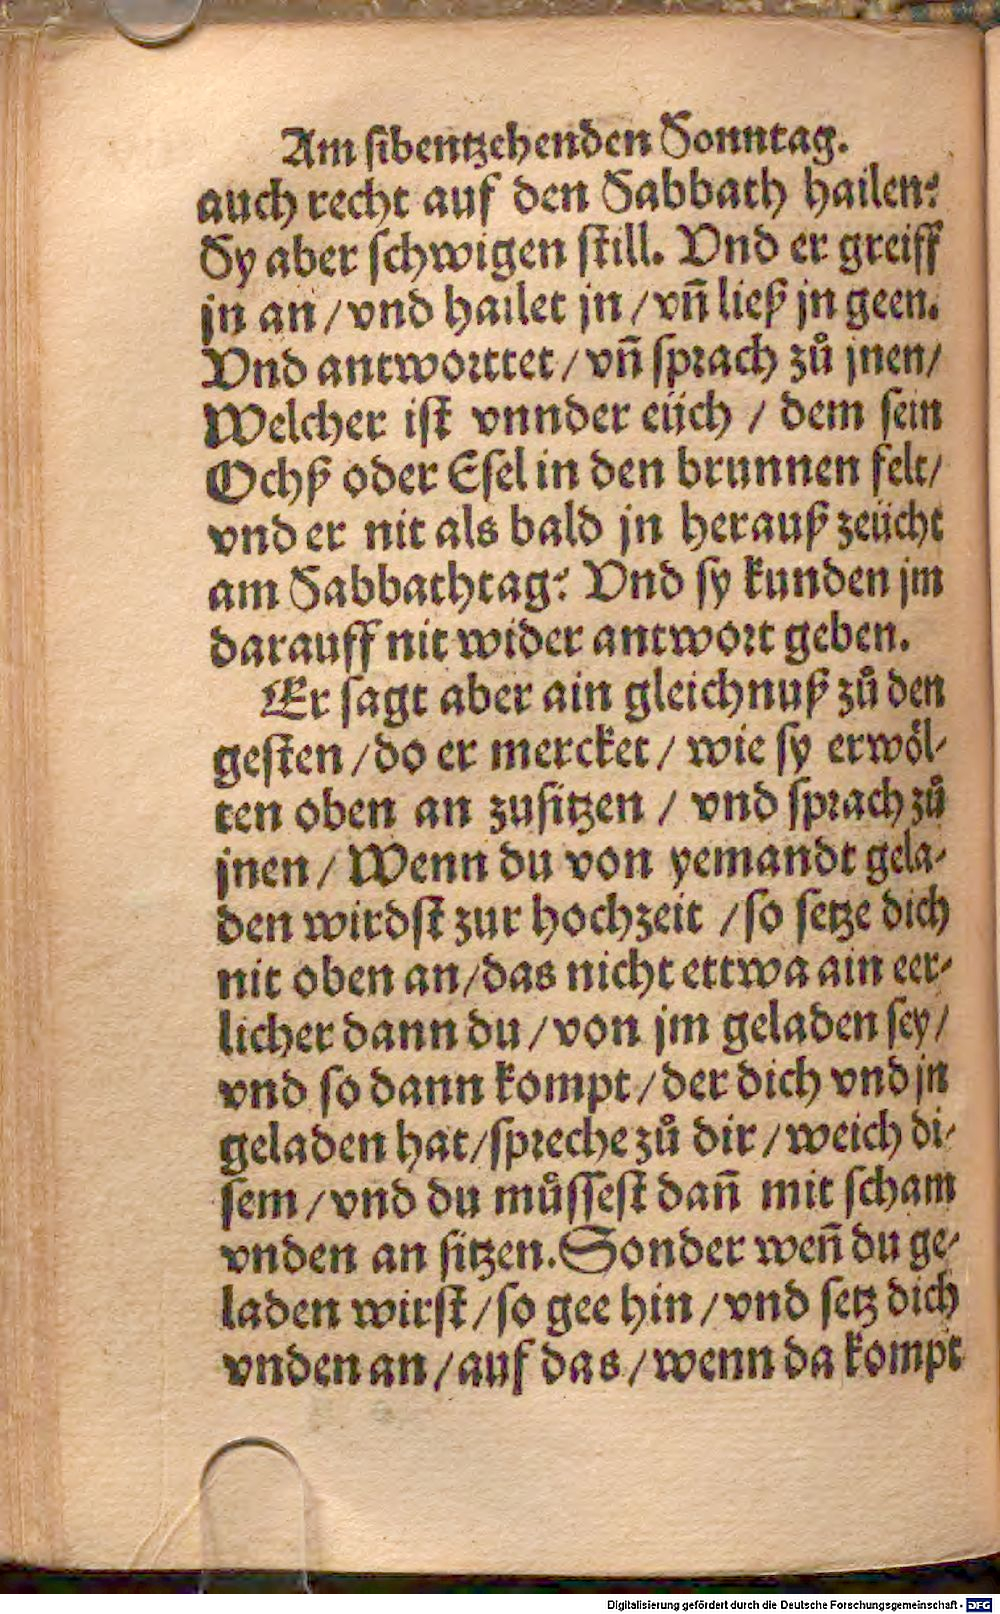 Am sibentzehenden Sonntag.
auch recht auf den Sabbath hailen?
Sy aber schwigen still. Vnd er greiff
jn an / vnd hailet jn / vn̄ ließ jn geen.
Vnd antworttet / vn̄ sprach zuͦ jnen /
Welcher ist vnnder eüch / dem sein
Ochß oder Esel in den brunnen felt /
vnd er nit als bald jn herauß zeücht
am Sabbathtag? Vnd sy kunden jm
darauff nit wider antwort geben.
Er sagt aber ain gleichnuß zuͦ den
gesten / do er mercket / wie sy erwoͤl-
ten oben an zusitzen / vnd sprach zuͦ
jnen / Wenn du von yemandt gela-
den wirdst zur hochzeit / so setze dich
nit oben an / das nicht ettwa ain eer-
licher dann du / von jm geladen sey /
vnd so dann kompt / der dich vnd jn
geladen hat / spreche zuͦ dir / weich di-
sem / vnd du muͤssest dan̄ mit scham
vnden an sitzen. Sonder wen̄ du ge-
laden wirst / so gee hin / vnd setz dich
vnden an / auf das / wenn da kompt
Digitalisierung gefördert durch die Deutsche Forschungsgemeinschaft - DFG